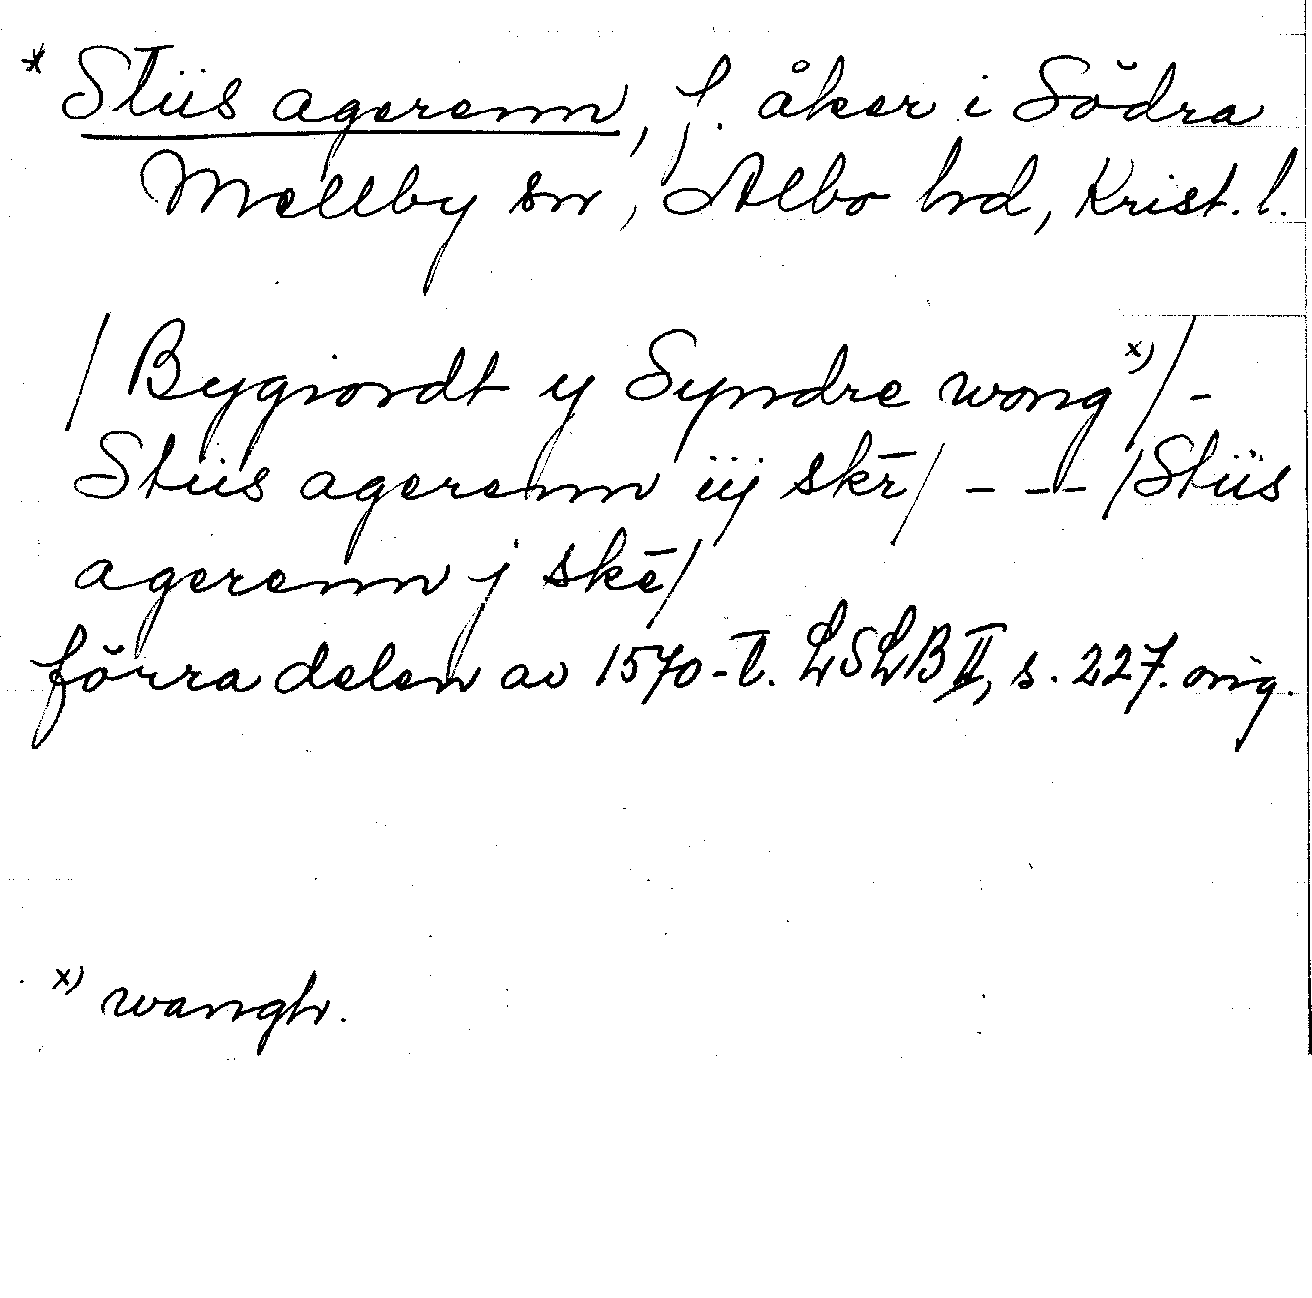 * Stiis agerenn, f. åker i Södra
Mellby sn, Albo hd, Krist. l.
/ Bygiordt y Syndre wong x) / -
Stiis agerenn iij skē / - - - / Stiis
agerenn j skē /
förra delen av 1570-t. LSLB II, s. 227. orig.
x) wangh.